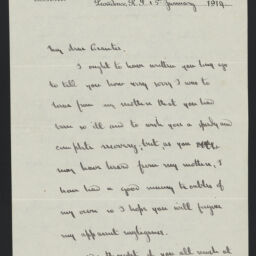 Providence, R.I. 15 January 1919.
My dear
I ought to have written you long ago
to tell you how very sorry I was to
learn from my mother that you had
been so ill and to wish you a speedy and
complete recovery, but as you
may have heard from my mother, I
have had a good many troubles of
my own so I hope you will forgive
my apparent negligence.
thought of you all much at